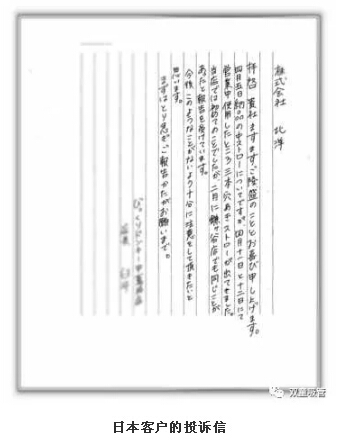 株式会社 北洋
拝啓 貴社ますますご隆盛のこととお喜び申し上げます。
四月五日納品の中ストローについてですが、四月十一日と十二日にて
営業中使用したところ三本穴あきストローが出てきました。
当店では初めてのことでしたが、二月に鎌ヶ谷店でも同じことが
あったと報告を受けています。
今後このようなことがないよう十分に注意をして頂きたいと
思います。
まずはとり急ぎご報告かたがたお願いまで。
双童吸管
日本客户的投诉信